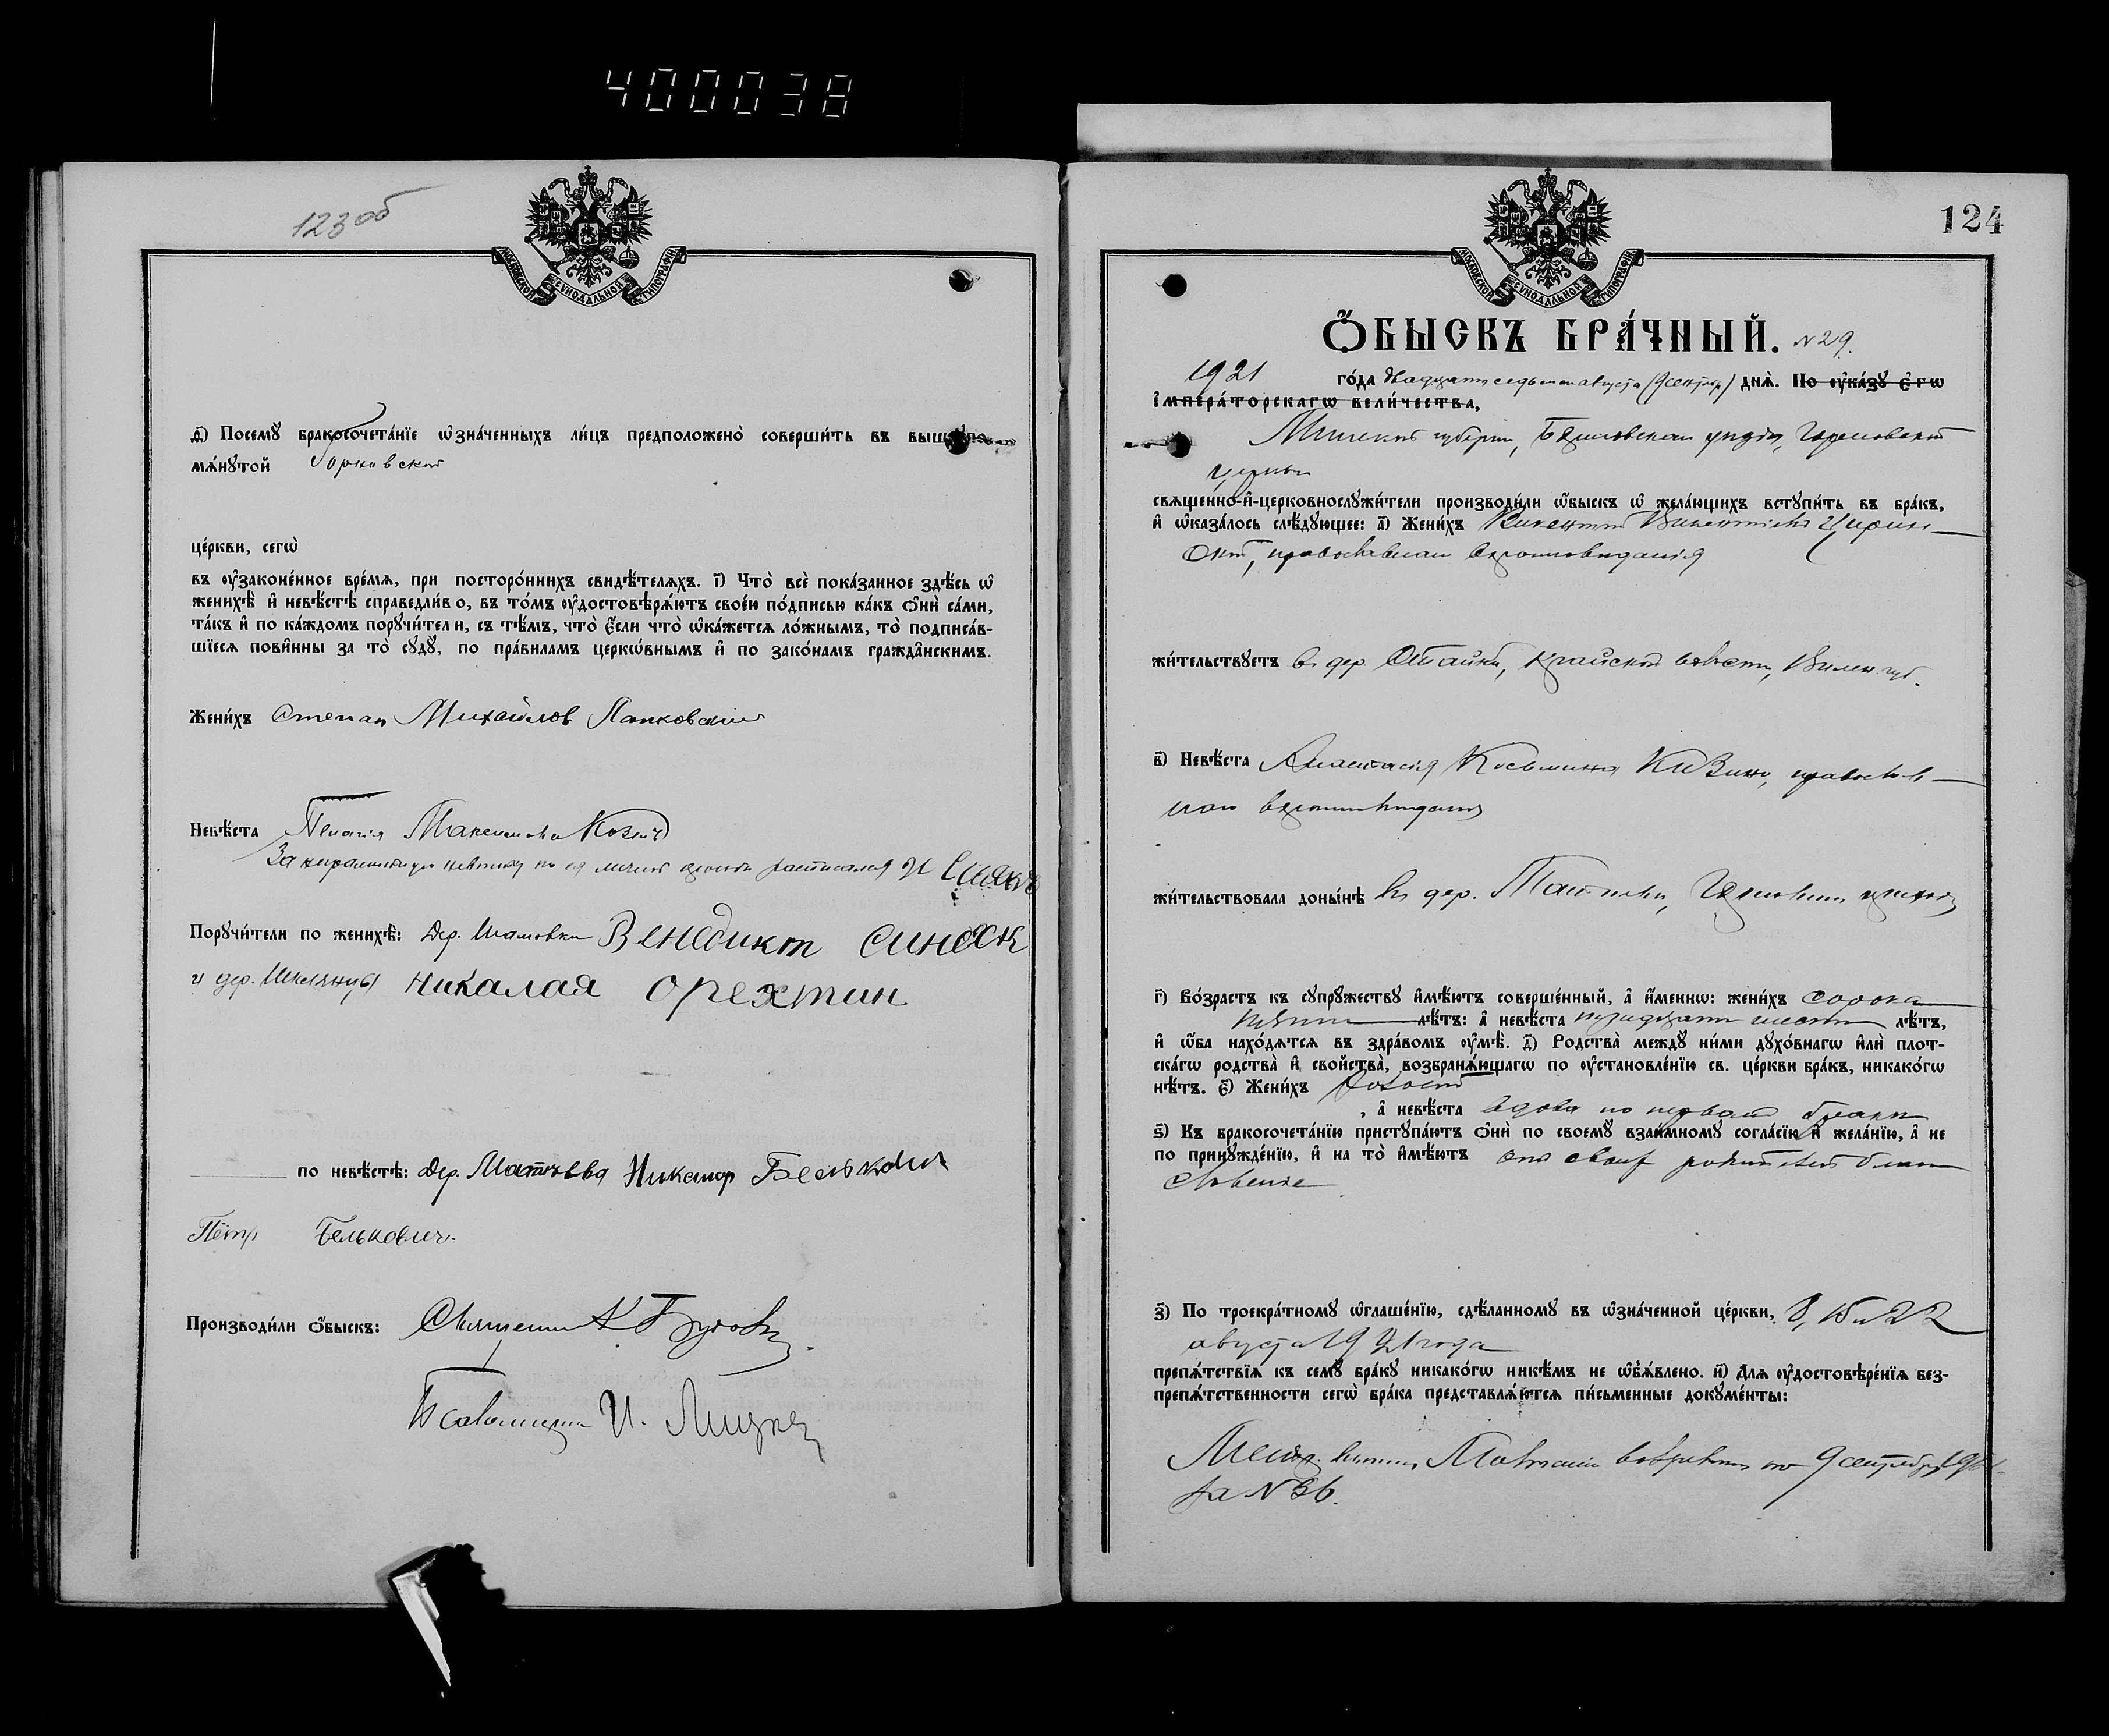 400038
123 об
МОСКОВСКОЙ СѴНОДАЛЬНОЙ ТИПОГРАФІИ
д҃) Посемꙋ бракосочета́нїе ѡ҆зна́ченныхъ ли́цъ предположено̀ соверши́ть въ вы́ш
мѧ́нꙋтой Горновской
це́ркви, сегѡ̀
въ ᲂу҆законе́нное вре́мѧ, при посторо́ннихъ свидѣ́телѧхъ. і҃) Что̀ всѐ пока́занное здѣ́сь ѡ҆
женихѣ̀ и҆ невѣ́стѣ справедли́во, въ то́мъ ᲂу҆достовѣрѧ́ютъ свое́ю по́дписью ка́къ ѻ҆нѝ са́ми,
та́къ и҆ по ка́ждомъ порꙋчи́тели, съ тѣ́мъ, что̀ є҆́сли что̀ ѡ҆ка́жетсѧ ло́жнымъ, то̀ подписа́в-
шїесѧ пови́нны за то̀ сꙋдꙋ̀, по пра́виламъ церкѡ́внымъ и҆ по зако́намъ гражда́нскимъ.
Жени́хъ Степан Михайлов Лапковский
Невѣ́ста Пелагія Максимова Козич
За неграмотную невѣсту по ея личной просьбѣ расписался И
Порꙋчи́тели по женихѣ̀: Дер. Шамовки Венедикт синяк
и дер. Николая орехтин
по невѣ́стѣ: Дер. Матвѣева Никанор Белькович
Пётр Белькович.
Производи́ли ѻ҆́быскъ: Священник К.
Псаломщик И. Лицкез
124
МОСКОВСКОЙ СѴНОДАЛЬНОЙ ТИПОГРАФІИ
Ѻ҆́БЫСКЪ БРА́ЧНЫЙ. N 29.
1921 го́да двадцать седьмого августа (9 сентяб) днѧ̀. По ᲂу҆ка́зꙋ є҆гѡ̀
і҆мпера́торскагѡ вели́чества,
Минской губерніи, Борисовскаго уѣзда, Горновской
церкви
свѧще́нно-и҆-церковнослꙋжи́тели производи́ли ѻ҆́быскъ ѡ҆ жела́ющихъ встꙋпи́ть въ бра́къ,
и҆ ѡ҆каза́лось слѣ́дꙋющее: а҃) Жени́хъ Викентий Викентіевъ Цирин-
ский, православнаго вѣроисповѣданія
жи́тельствꙋетъ въ дер. Отайки, Крайской волости, Вилен. губ.
в҃) Невѣ́ста Анастасія Косьмина Кизино, православ-
наго вѣроисповѣданія
жи́тельствовала доны́нѣ въ дер.
г҃) Во́зрастъ къ сꙋпрꙋ́жествꙋ и҆мѣ́ютъ соверше́нный, а҆ и҆́меннѡ: жени́хъ сорока
пяти лѣ́тъ: а҆ невѣ́ста тридцати шести лѣ́тъ,
и҆ ѻ҆́ба нахо́дѧтсѧ въ здра́вомъ ᲂу҆мѣ̀. д҃) Родства̀ междꙋ̀ ни́ми дꙋхо́внагѡ и҆лѝ плот-
ска́гѡ родства̀ и҆ свойства̀, возбранѧ́ющагѡ по ᲂу҆становле́нїю св. це́ркви бра́къ, никако́гѡ
нѣ́тъ. є҃) Жени́хъ холост
, а҆ невѣ́ста вдова по первом бракѣ
ѕ҃) Къ бракосочета́нїю пристꙋпа́ютъ ѻ҆нѝ по своемꙋ̀ взаи́мномꙋ согла́сїю и҆ жела́нїю, а҆ не
по принꙋжде́нїю, и҆ на то̀ и҆мѣ́ютъ своих родителей благо-
словеніе
з҃) По троекра́тномꙋ ѡ҆глаше́нїю, сдѣ́ланномꙋ въ ѡ҆зна́ченной це́ркви, 8, 15 и 22
августа 1921 года
препѧ́тствїѧ къ семꙋ̀ бра́кꙋ никако́гѡ никѣ́мъ не ѡ҆б̾ѧ́влено. и҃) Длѧ ᲂу҆достовѣре́нїѧ без-
препѧ́тственности сегѡ̀ бра́ка представлѧ́ютсѧ пи́сьменные докꙋме́нты:
9 сентября
за N 36.